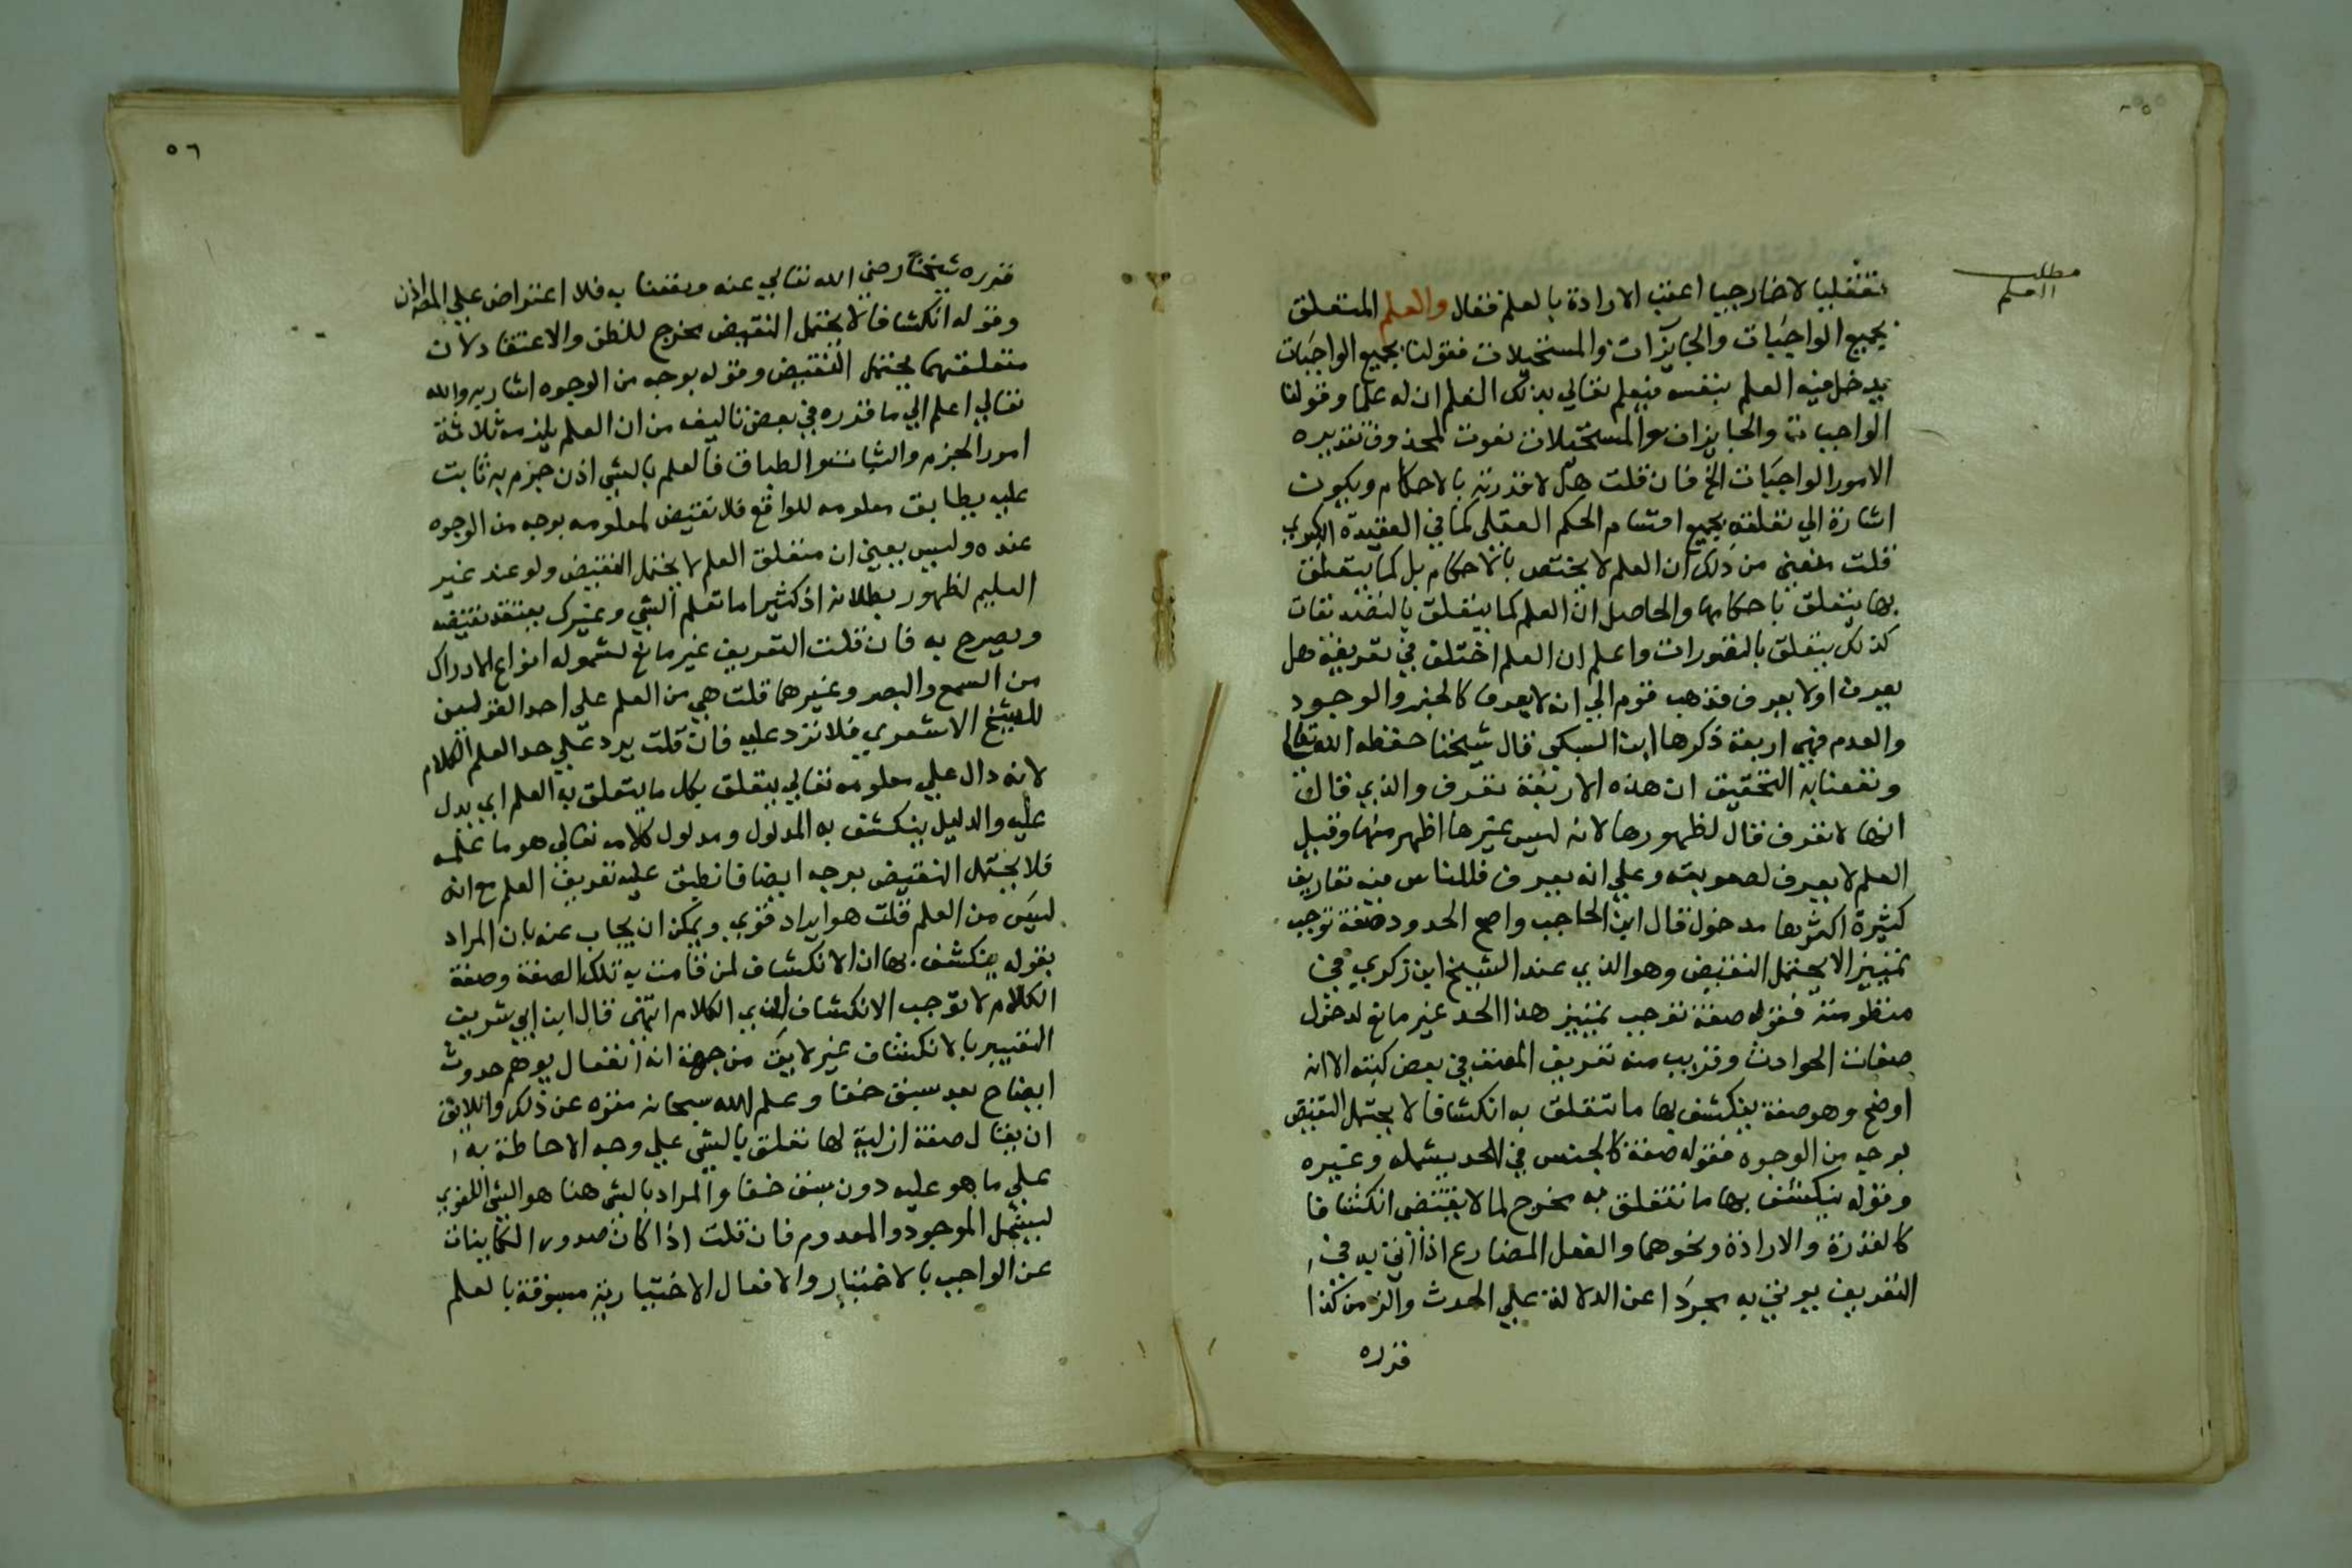 مطلب
العلم
تعقليا لا خارجيا اعقب الارادة بالعلم فقال والعلم المتعلق
بجميع الواجبات والجايزات والمستحيلات فقولنا بجميع الواجبات
يدخل فيه العلم بنفسه فيعلم تعالي بذلك العلم ان له علما وقولنا
الواجبات والجايزات والمستحيلات نعوت لمحذوف تقديره
الامور الواجبات الخ فان قلت هلا قدرته بالاحكام ويكون
اشارة الي تعلقه بجميع اقسام الحكم العقلي كما في العقيدة الكبري
قلت منعني من ذلك ان العلم لا يختص بالاحكام بل كما يتعلق
بها يتعلق باحكامها والحاصل ان العلم كما يتعلق بالتصديقات
كذلك يتعلق بالتصورات واعلم ان العلم اختلف في تعريفه هل
يعرف اولا يعرف فذهب قوم الي انه لا يعرف كالخبر والوجود
والعدم فهي اربعة ذكرها ابن السبكي قال شيخنا حفظه الله تعالي
ونفعنا به التحقيق ان هذه الاربعة تعرف والذي قال
انها لا تعرف قال لظهورها لانه ليس غيرها اظهر منها وقيل
العلم لا يعرف لصعوبته وعلي انه يعرف فللناس فيه تعاريف
كثيرة اكثرها مدخول قال ابن الحاجب واصح الحدود صفة توجب
تمييزا لا يحتمل النقيض وهو الذي عند الشيخ ابن زكري في
منظومته فقوله صفة توجب تمييز هذا الحد غير مانع لدخول
صفات الحوادث وقريب منه تعريف المصنف في بعض كتبه الا انه
اوضح وهو صفة ينكشف بها ما تتعلق به انكشافا لا يحتمل النقيض
بوجه من الوجوه فقوله صفة كالجنس في الحد يشمله وغيره
وقوله ينكشف بها ما تتعلق به مخرج لما لا يقتضي انكشافا
كالقدرة والارادة ونحوهما والفعل المضارع اذا اتي به في
التعريف يوتي به مجردا عن الدلالة علي الحدث والزمن كذا
قرره
٥٦
قرره شيخنا رضي الله تعالي عنه ونفعنا به فلا اعتراض علي المص اذن
وقوله انكشافا لا يحتمل النقيض مخرج للظن والاعتقاد لان
متعلقهما يحتمل النقيض وقوله بوجه من الوجوه اشار به والله
تعالي اعلم الي ما قرره في بعض تاليفه من ان العلم يلزمه ثلاثة
امور الجزم والثبات والطباق فالعلم بالشي اذن جزم به ثابت
عليه يطابق معلومه للواقع فلا نقيض لمعلومه بوجه من الوجوه
عنده وليس يعين ان متعلق العلم لا يحتمل النقيض ولو عند غير
العليم لظهور بطلانه اذ كثيرا ما تعلم الشي وغيرك يعتقد نقيضه
ويصرح به فان قلت التعريف غير مانع لشموله انواع الادراك
من السمع والبصر وغيرهما قلت هي من العلم علي احد القولين
للشيخ الاشعري فلا ترد عليه فان قلت يرد علي حد العلم الكلام
لانه دال علي معلومه تعالي يتعلق بكل ما يتعلق به العلم اي يدل
عليه والدليل ينكشف به المدلول ومدلول كلامه تعالي هو ما علمه
فلا يحتمل النقيض بوجه ايضا فانطبق عليه تعريف العلم مع انه
ليس من العلم قلت هو ايراد قوي ويمكن ان يجاب عنه بان المراد
بقوله ينكشف بها ان الانكشاف لمن قامت به تلك الصفة وصفة
الكلام لا توجب الانكشاف لذي الكلام انتهى قال ابن ابي شريف
التعبير بالانكشاف غير لايق من جهة انه انفعال يوهم حدوث
ايضاح بعد سبق خفا وعلم الله سبحانه منزه عن ذلك واللايق
ان يقال صفة ازلية لها تعلق بالشي علي وجه الاحاطة به
علي ما هو عليه دون سبق خفا والمراد بالشي هنا هو الشي اللغوي
ليشمل الموجود والمعدوم فان قلت اذا كان صدور الكاينات
عن الواجب بالاختيار والافعال الاختيارية مسبوقة بالعلم